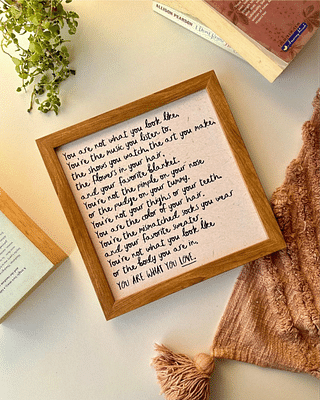 You are not what you look like,
You're the music you listen to,
the shows you watch, the art you make,
the flowers in your hair,
and your favorite blanket.
You're not the pimple on your nose
or the pudge on your tummy.
You're not your thighs or your teeth
You are the color of your hair.
You're the mismatched socks you wear
and your favorite sweater.
You're not what you look like
or the body you are in.
YOU ARE WHAT YOU LOVE.
ALLISON PEARSON